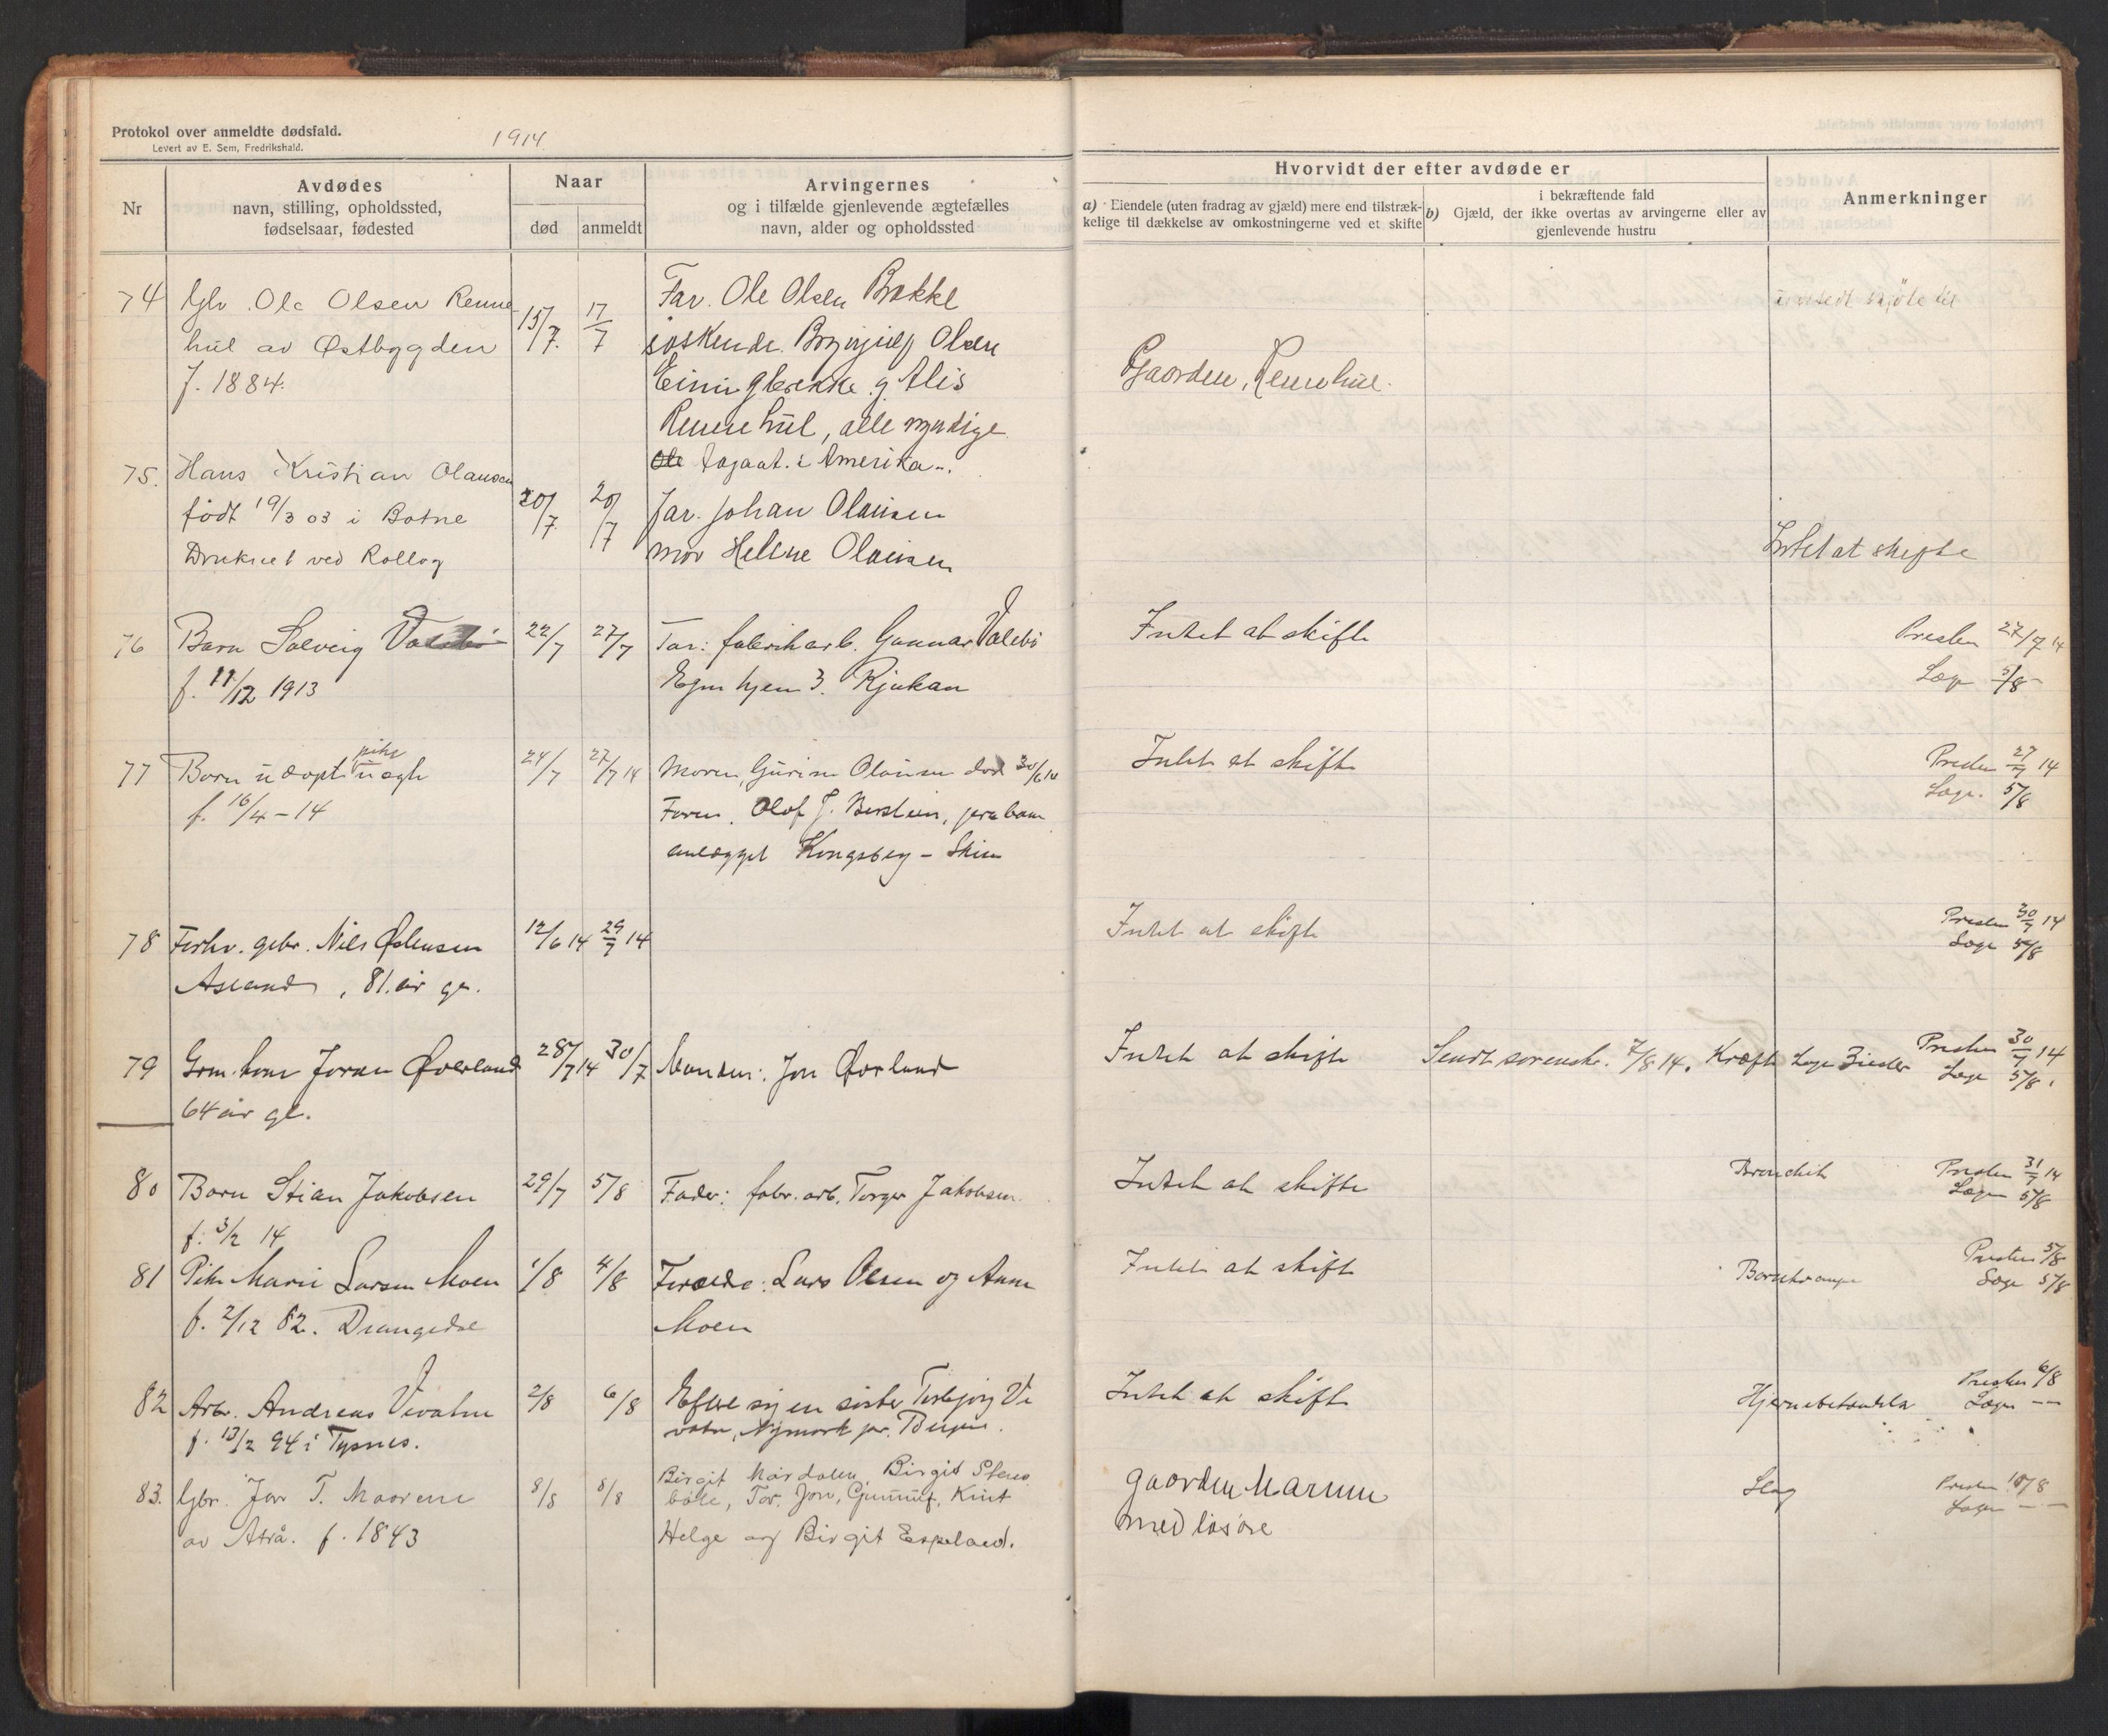 Protokol over anmeldte dødsfald.
Levert av E. Sem, Fredrikshald.
1914
Nr
Avdødes
navn, stilling, opholdssted,
fødselsaar, fødested
Naar
død
anmeldt
Arvingernes
og i tilfælde gjenlevende ægtefælles
navn, alder og opholdssted
Hvorvidt der efter avdøde er
a) Eiendele (uten fradrag av gjæld) mere end tilstræk-
kelige til dækkelse av omkostningerne ved et skifte
i bekræftende fald
b) Gjæld, der ikke overtas av arvingerne eller av
gjenlevende hustru
Anmerkninger
74 Gbr. Ole Olsen Renne 15/7. 17/7 Far. Ole Olsen Bakke
hul av Østbygden søskende. Olsen
f. 1884.
Rennehul, alle myndige
Gaarden, Rennehul.
i Amerika
75. Hans Kristian Olausen 20/7. 20/7 Far. Johan Olausen
født 19/3 03 i Botne mor Helene Olausen
Druknet ved Rollag
Intet at skifte
76 Barn Solveig 22/7 27/7 Far: fabrikarb. Gunnar Valebø Intet at skifte Presten 27/7 14
f. 11/12 1913 Egne hjem 3. Rjukan Læge 5/8
77 Barn udøpt uegte 24/7 27/7 14 Moren, Gurine Olausen død 30/6 14 Intet at skifte Presten 27/7 14
pike
f. 16/4 - 14 Faren, Olof J. jernbane Læge. 5/8
anlægget Kongsberg - Skien
78 Forhv. gbr. Nils Østensen 12/6 14 29/7 14 Intet at skifte Presten 30/7 14
Læge 5/8
Aasland, 81 år gl.
79 Grm. kone Joran Øverland 28/7 14 30/7 Manden: Jon Øverland Intet at skifte Sendt sorensk. 7/8 14. Kræft Læge Presten 30/7 14
Læge 5/8
64 år gl.
80 Barn Stian Jakobsen 29/7 5/8 Fader: fabr. arb. Torger Jakobsen. Intet at skifte Bronchit Presten 31/7 14
Lægen 5/8
f. 3/2 14
81 Pike Marie Larsen Moen 1/8 4/8 Forældre: Lars Olsen og Anne Intet at skifte Presten 5/8
Læge 5/8
f. 2/12 82. Drangedal Moen
82 Arb. Andreas Vevatne 2/8 6/8 Efterl sig en søster Torbjørg Ve Intet at skifte Presten 6/8
vatne, Nymark pr. Bergen. Hjernebetændelse Lægen — —
f. 13/2 94 i Tysnes.
83. Gbr. Jon T. Maarem 8/8 8/8 Birgit Mårdalen, Birgit Steins Gaarden Marem Slag Presten 10/8
bøle, Tor, Jon, Gunnulf, Knut med løsøre Lægen — —
av Atrå. f. 1843 Helge og Birgit Espeland.